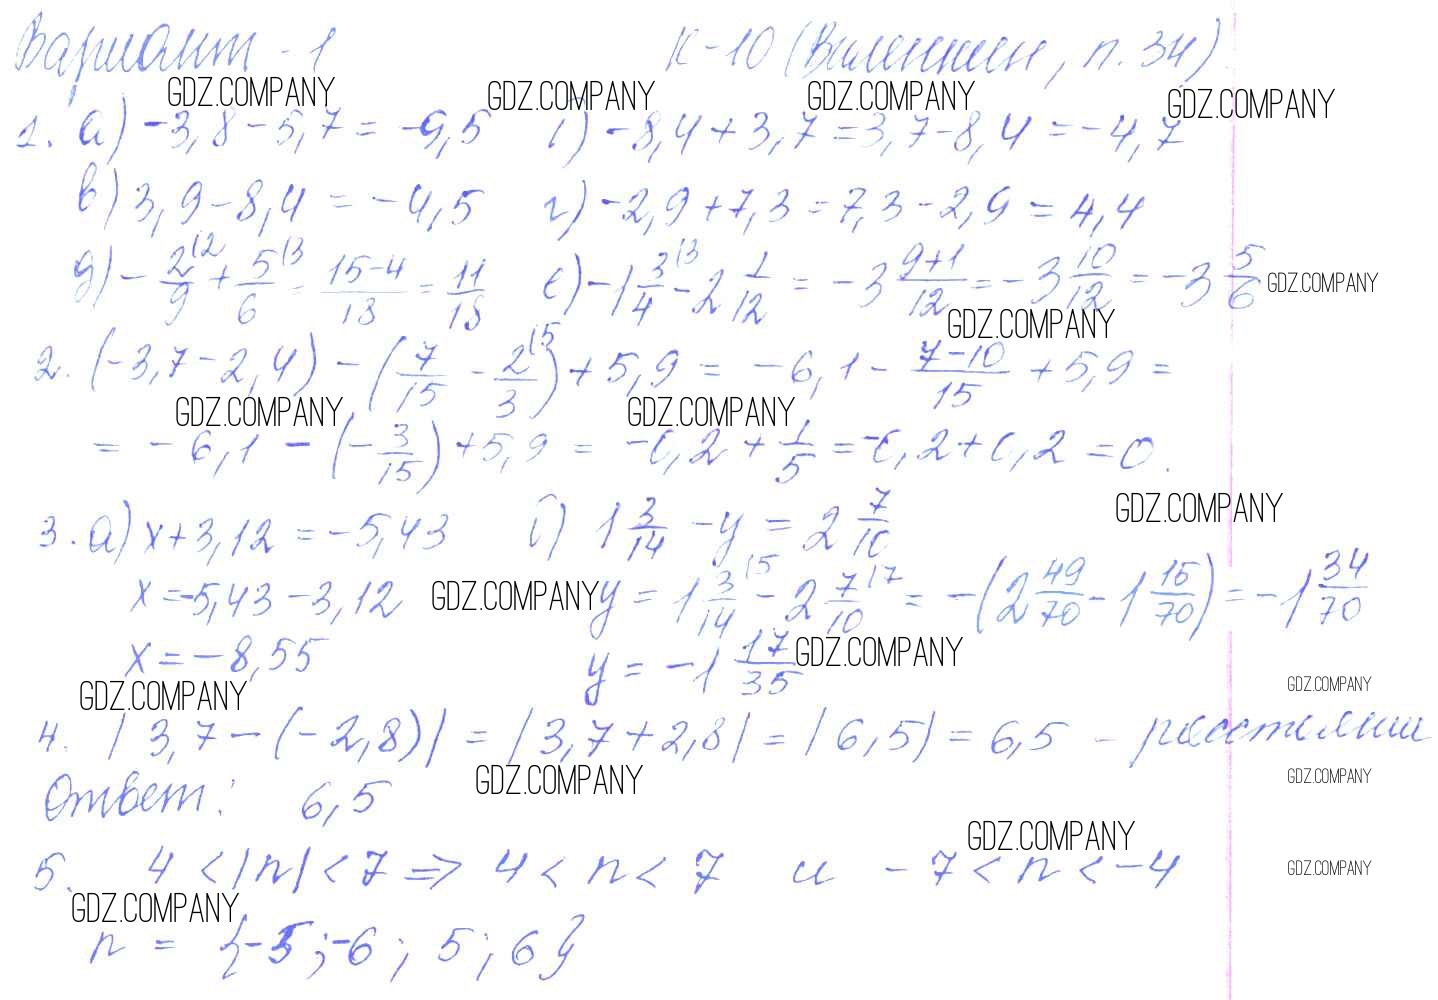 Вариант - 1 К-10 (Виленкин, п. 34)
GDZ.COMPANY GDZ.COMPANY GDZ.COMPANY GDZ.COMPANY
1. а) -3,8 - 5,7 = -9,5 б) -8,4 + 3,7 = 3,7 - 8,4 = -4,7
в) 3,9 - 8,4 = -4,5 г) -2,9 + 7,3 = 7,3 - 2,9 = 4,4
д) - 2/9 (2 + 5/6 (3 = (15-4)/18 = 11/18 е) -1 3/4 (3 - 2 1/12 = -3 (9+1)/12 = -3 10/12 = -3 5/6 GDZ.COMPANY
GDZ.COMPANY
2. (-3,7 - 2,4) - (7/15 - 2/3 (5) + 5,9 = -6,1 - (7-10)/15 + 5,9 =
GDZ.COMPANY GDZ.COMPANY
= -6,1 - (-3/15) + 5,9 = -0,2 + 1/5 = -0,2 + 0,2 = 0.
GDZ.COMPANY
3. а) x + 3,12 = -5,43 б) 1 3/14 - y = 2 7/10
x = -5,43 - 3,12 GDZ.COMPANY y = 1 3/14 (5 - 2 7/10 (7 = -(2 49/70 - 1 15/70) = -1 34/70
x = -8,55 y = -1 17/35 GDZ.COMPANY
GDZ.COMPANY GDZ.COMPANY
4. |3,7 - (-2,8)| = |3,7 + 2,8| = |6,5| = 6,5 - расстояние
GDZ.COMPANY GDZ.COMPANY
Ответ: 6,5
GDZ.COMPANY
5. 4 < |n| < 7 => 4 < n < 7 и -7 < n < -4 GDZ.COMPANY
GDZ.COMPANY
n = {-5; -6; 5; 6}